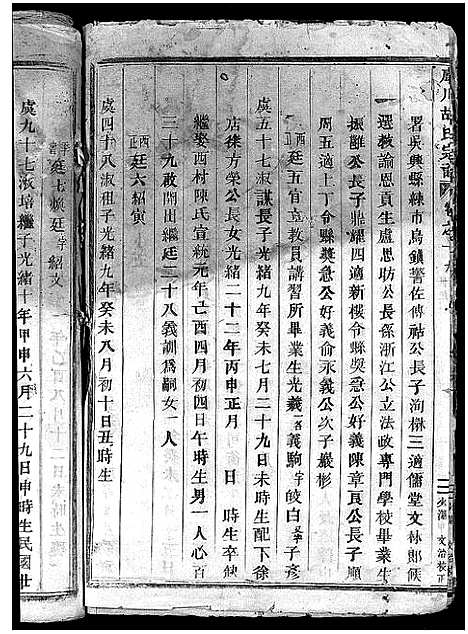 胡氏宗譜
署吳興縣練市烏鎮警佐傅祜公長子洵樾三適儒堂文林郎候
選教諭恩貢生盧思昉公長孫浙江公立法政專門學校畢業生
振聲公長子鼎耀四適新樓令縣獎急公好義陳章頁公長子順
周五適上丁令縣獎急公好義俞永義公次子嚴彬
酉五 廷五官教員講習所畢業生光羲名義駒字皞白子彥
虞七十九淑謀長子光緒九年癸未七月二十九日辰時生配下徐
店徐方榮公長女光緒二十二年丙申正月 日 時生卒缺
繼娶西村陳氏宣統元年己酉四月初四日午時生男一人心百
三十九啟開出繼廷二十八義訓爲嗣女一人
酉正 廷六紹寅
虞四十八淑祖子光緒九年癸未八月初十日丑時生
廷七煥廷字紹文
虞九十七淑培繼子光緒十年甲申六月二十九日申時生民國廿
文治校正